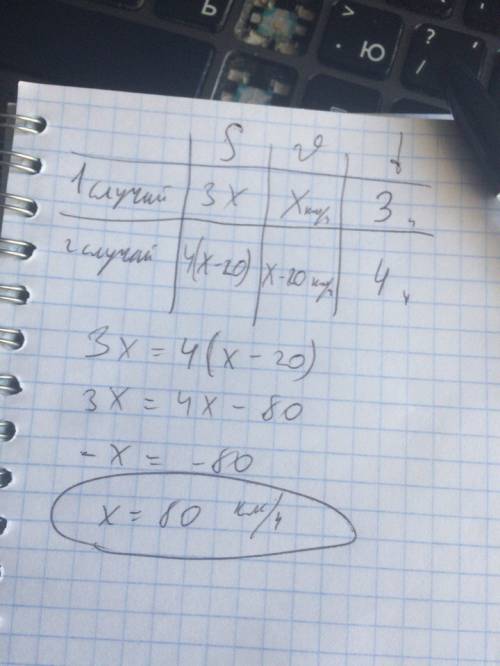 Ь > . Ю ? / '
S v t
1 случай 3x x км/ч 3 ч
2 случай 4(x-20) x-20 км/ч 4 ч
3x = 4(x-20)
3x = 4x - 80
-x = -80
x = 80 км/ч